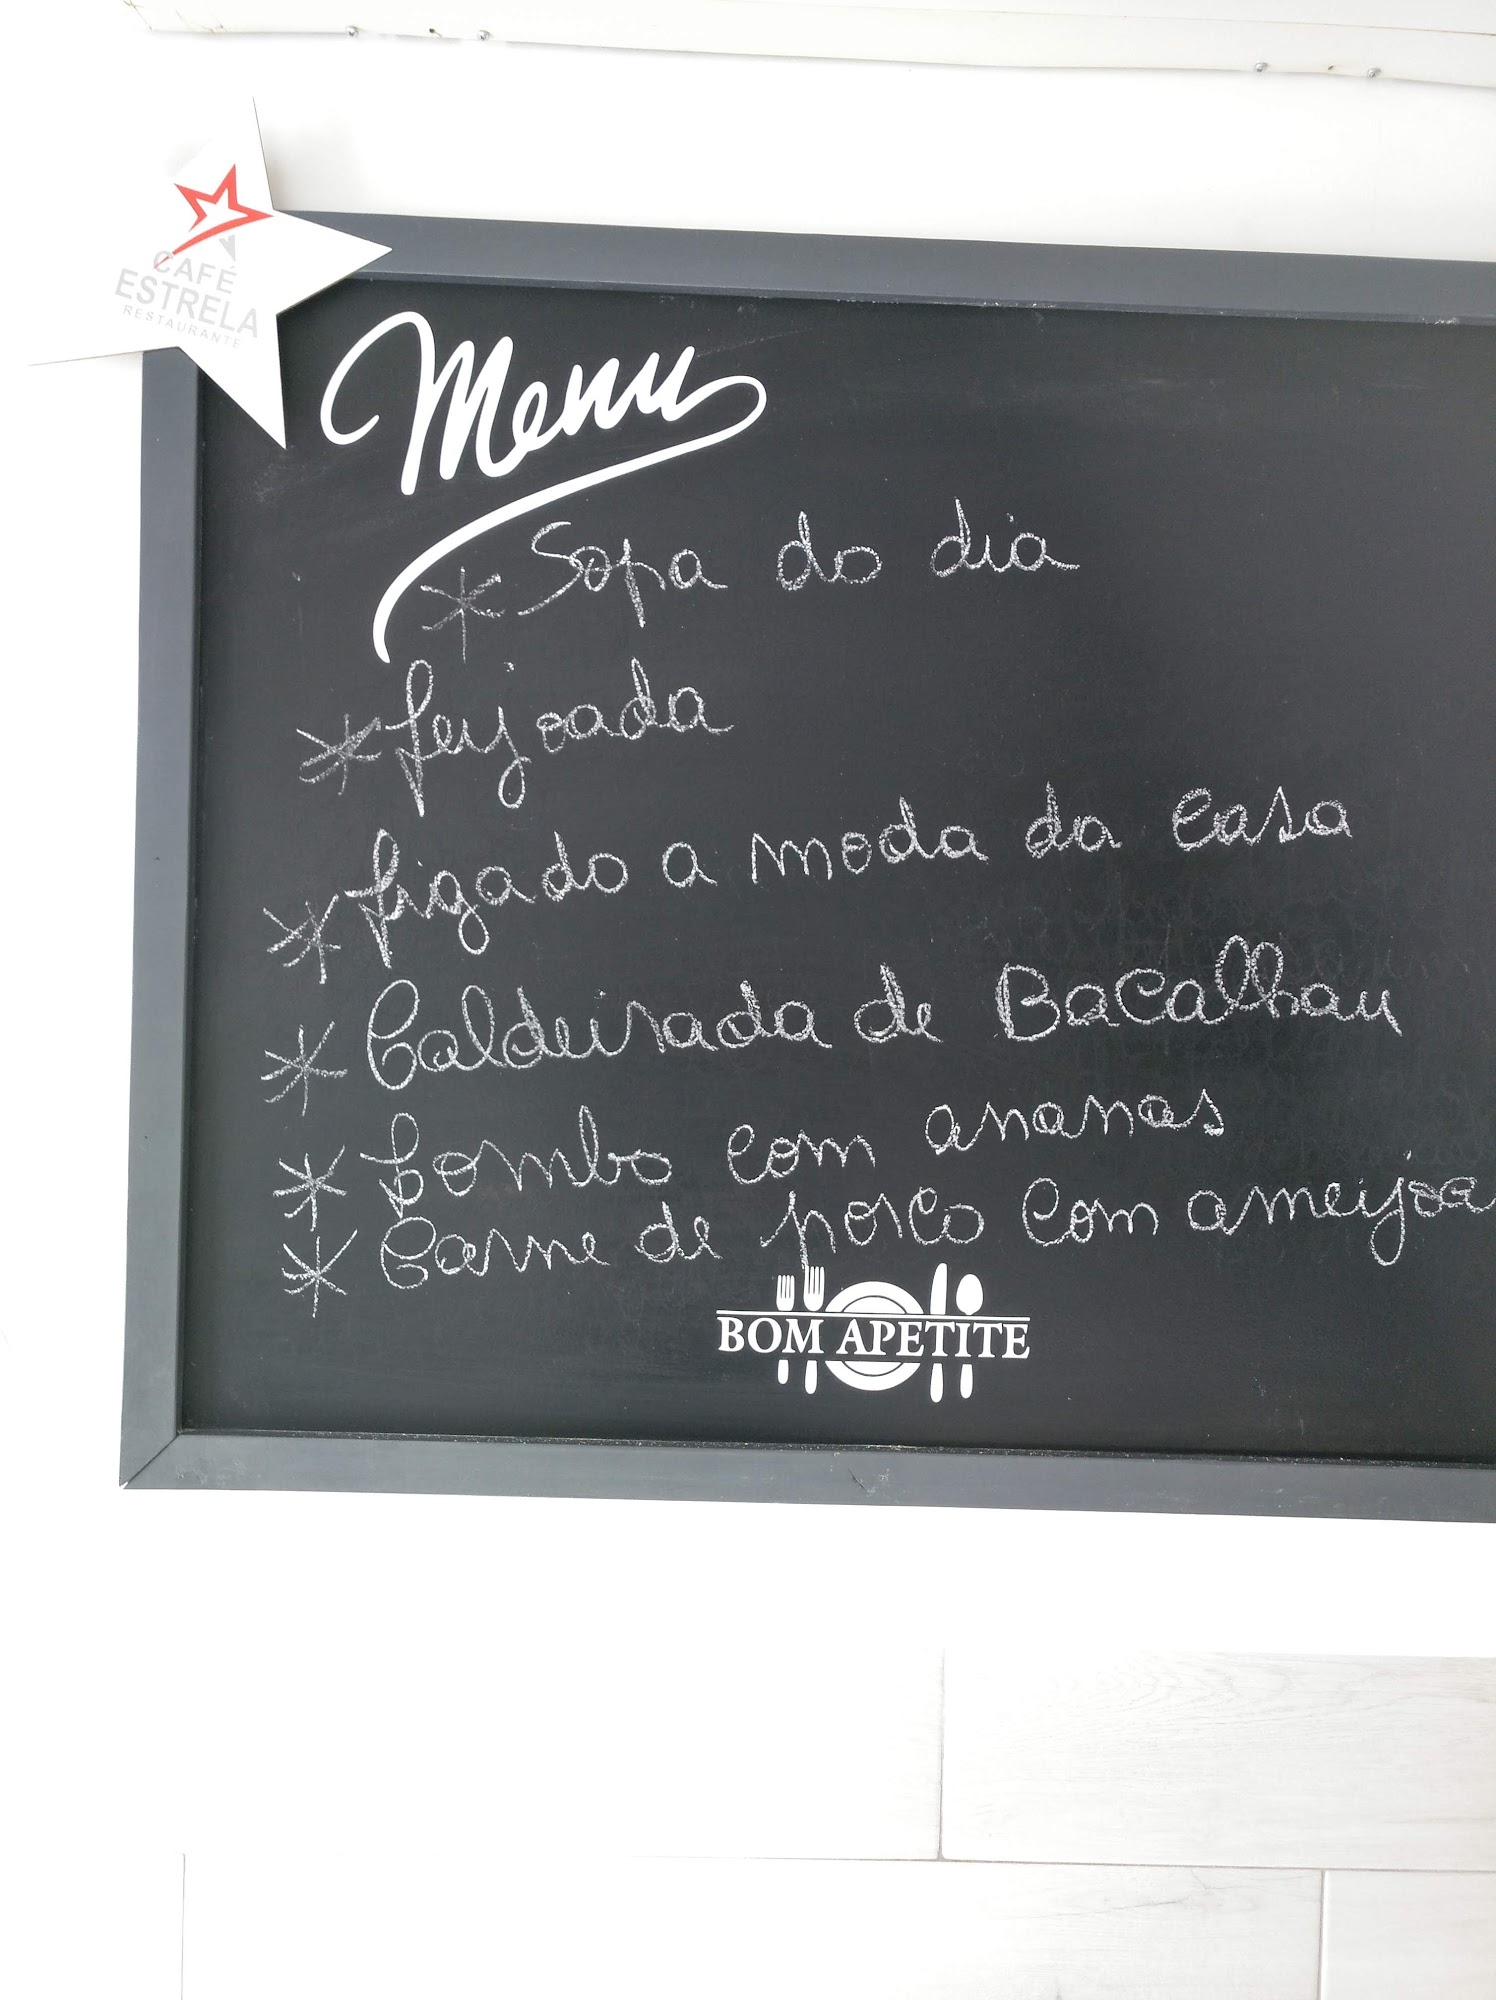 CAFÉ
ESTRELA
RESTAURANTE
Menu
* Sopa do dia
* feijoada
* figado a moda da casa
* Caldeirada de Bacalhau
* Lombo com ananas
* Carne de porco com ameijoa
BOM APETITE